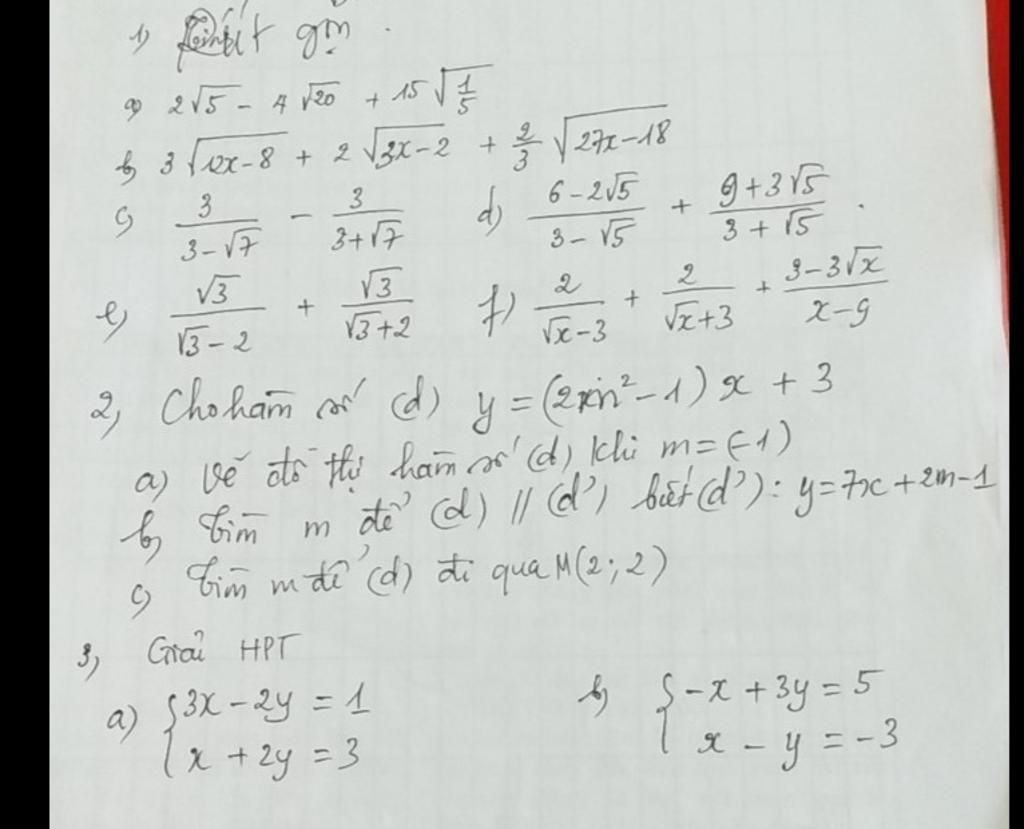 1) Rút gọn.
a) 2√5 - 4√20 + 15√(1/5)
b) 3√(12x-8) + 2√(3x-2) + 2/3 √(27x-18)
c) 3/(3-√7) - 3/(3+√7) d) (6-2√5)/(3-√5) + (9+3√5)/(3+√5).
e) √3/(√3-2) + √3/(√3+2) f) 2/(√x-3) + 2/(√x+3) + (3-3√x)/(x-9)
2, Cho hàm số (d) y = (2m²-1)x + 3
a) Vẽ đồ thị hàm số (d) khi m = (-1)
b) Tìm m để (d) // (d') biết (d'): y=7x+2m-1
c) Tìm m để (d) đi qua M(2;2)
3, Giải HPT
a) {3x - 2y = 1 b) {-x + 3y = 5
x + 2y = 3 x - y = -3